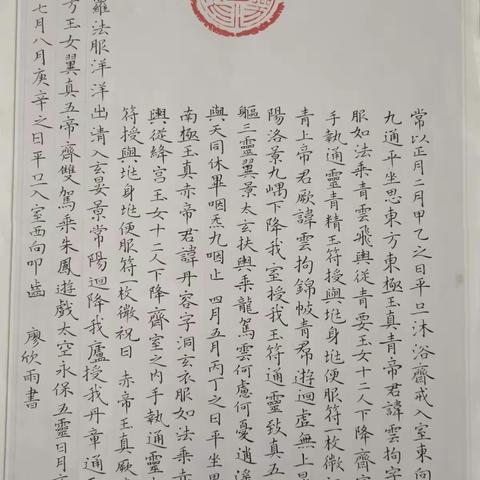 常以正月二月甲乙之日平旦沐浴齋戒入室東向
九通平坐思東方東極玉真青帝君諱雲拘字
服如法乘青雲飛輿從青要玉女十二人下降齋
手執通靈青精玉符授與垗身垗便服符一枚微
青上帝君厥諱雲拘錦帔青帬遊迴虛無上
陽洛景九嵎下降我室授我玉符通靈致真五
軀三靈翼景太玄扶輿乘龍駕雲何慮何憂逍遙
與天同休畢咽炁九咽止 四月五月丙丁之日平坐思
南極玉真赤帝君諱丹容字洞玄衣服如法乘赤
輿從絳宮玉女十二人下降齋室之內手執通靈
符授與垗身垗便服符一枚微祝曰 赤帝玉真厥
羅法服洋洋出清入玄晏景常陽迴降我廬授我丹章通
方玉女翼真五帝齊雙駕乘朱鳳遊戲太空永保五靈日月
七月八月庚辛之日平旦入室西向叩齒 廖欣雨書